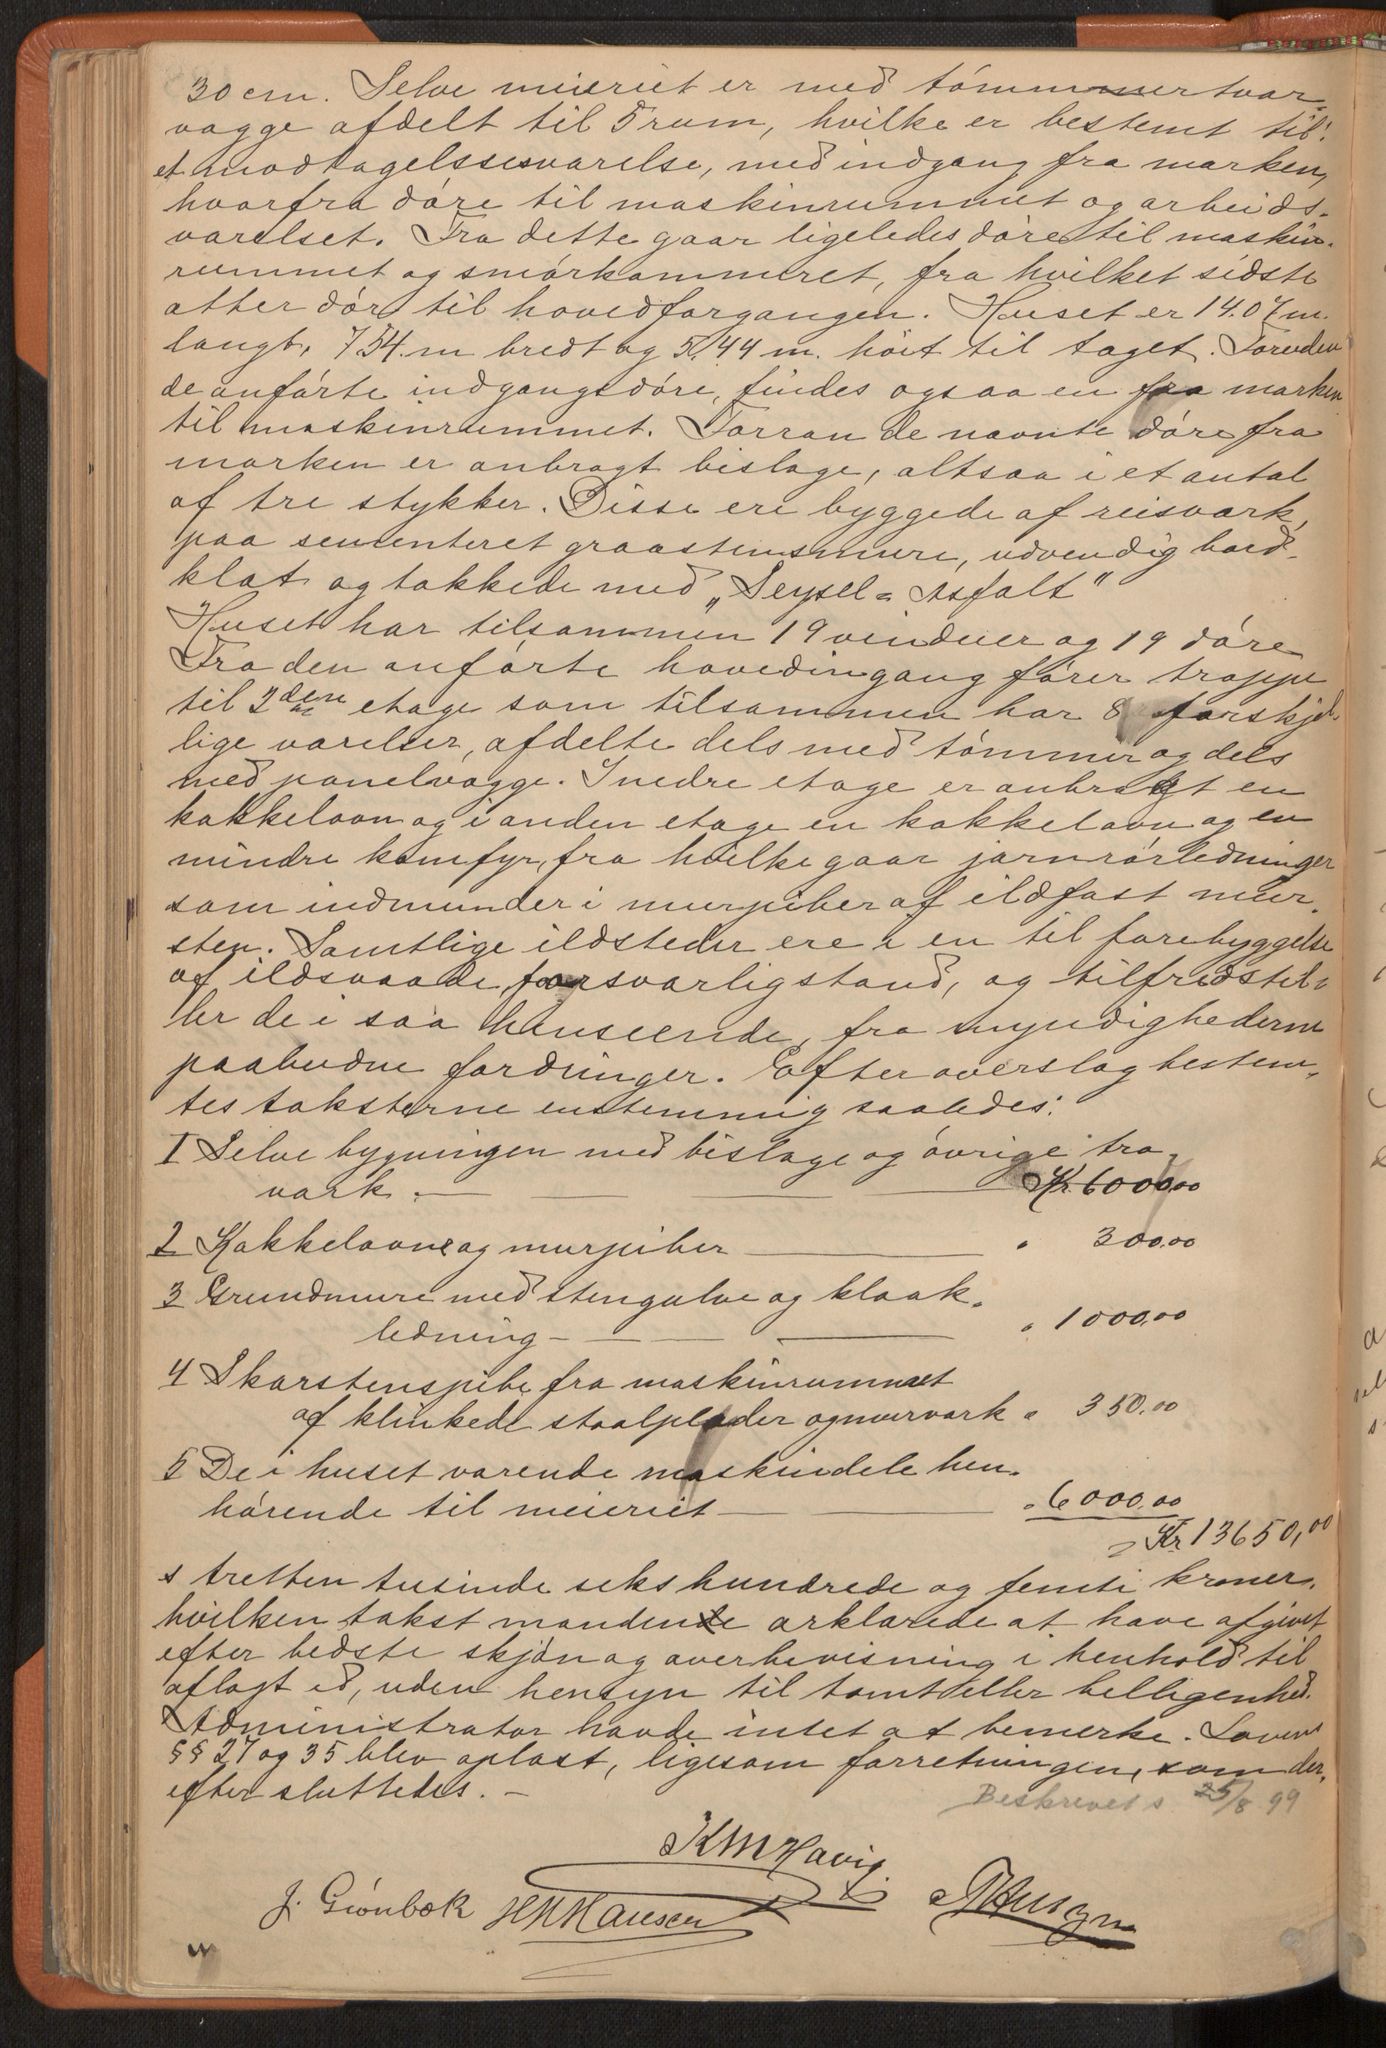 30 cm. Selve meieriet er med tömmertvær-
vægge afdelt til 5 rum, hvilke er bestemt til:
et modtagelsesværelse, med indgang fra marken,
hvorfra döre til maskinrummet og arbeids-
værelset. Fra dette gaar ligeledes döre til maskin-
rummet og smörkammeret, fra hvilket sidste
atter dör til hovedforgangen. Huset er 14.07 m.
langt, 7.54 m bredt og 5.44 m. höit til taget. Foruden
de anförte indgangsdöre, findes ogsaa en fra marken
til maskinrummet. Forran de nævnte döre fra
marken er anbragt bislage, altsaa i et antal
af tre stykker. Disse ere byggede af reisværk,
paa sementeret graastensmure, udvendig bord-
klæt og tækkede med „Seysel = Asfalt"
Huset har tilsammen 19 vinduer og 19 döre
Fra den anförte hovedingang förer trappe
til 2den etage som tilsammen har 8 forskjel-
lige værelser, afdelte dels med tömmer og dels
med panelvægge. I nedre etage er anbragt en
kakkelovn og i anden etage en kakkelovn og en
mindre komfyr, fra hvilke gaar jernrörledninger
som indmunder i murpiber af ildfast mur-
sten. Samtlige ildsteder ere i en til forebyggelse
af ildsvaade forsvarlig stand, og tilfredstil-
ler de i saa henseende, fra myndighederne
paabudne fordringer. Efter overslag bestem-
tes taksterne enstemmig saaledes:
I Selve bygningen med bislage og övrige træ-
værk. — — — Kr 6000.00
2 Kakkelovne og murpiber — " 300.00
3 Grundmure med stengulve og kloak-
ledning — — — " 1000.00
4 Skorstenspibe fra maskinrummet
af klinkede staalplader og murværk " 350.00
5 De i huset værende maskindele hen-
hörende til meieriet — — " 6000.00
Kr 13650,00
s tretten tusinde seks hundrede og femti kroner,
hvilken takst mændene erklærede at have afgivet
efter bedste skjön og overbevisning i henhold til
aflagt ed, uden hensyn til tomt eller beliggenhed.
Administrator havde intet at bemerke. Lovens
§§ 27 og 35 blev oplæst, ligesom forretningen, som der-
efter sluttedes. —
Beskrevet s 25/8 99
KMHavig
J. Grönbæk HMHansen